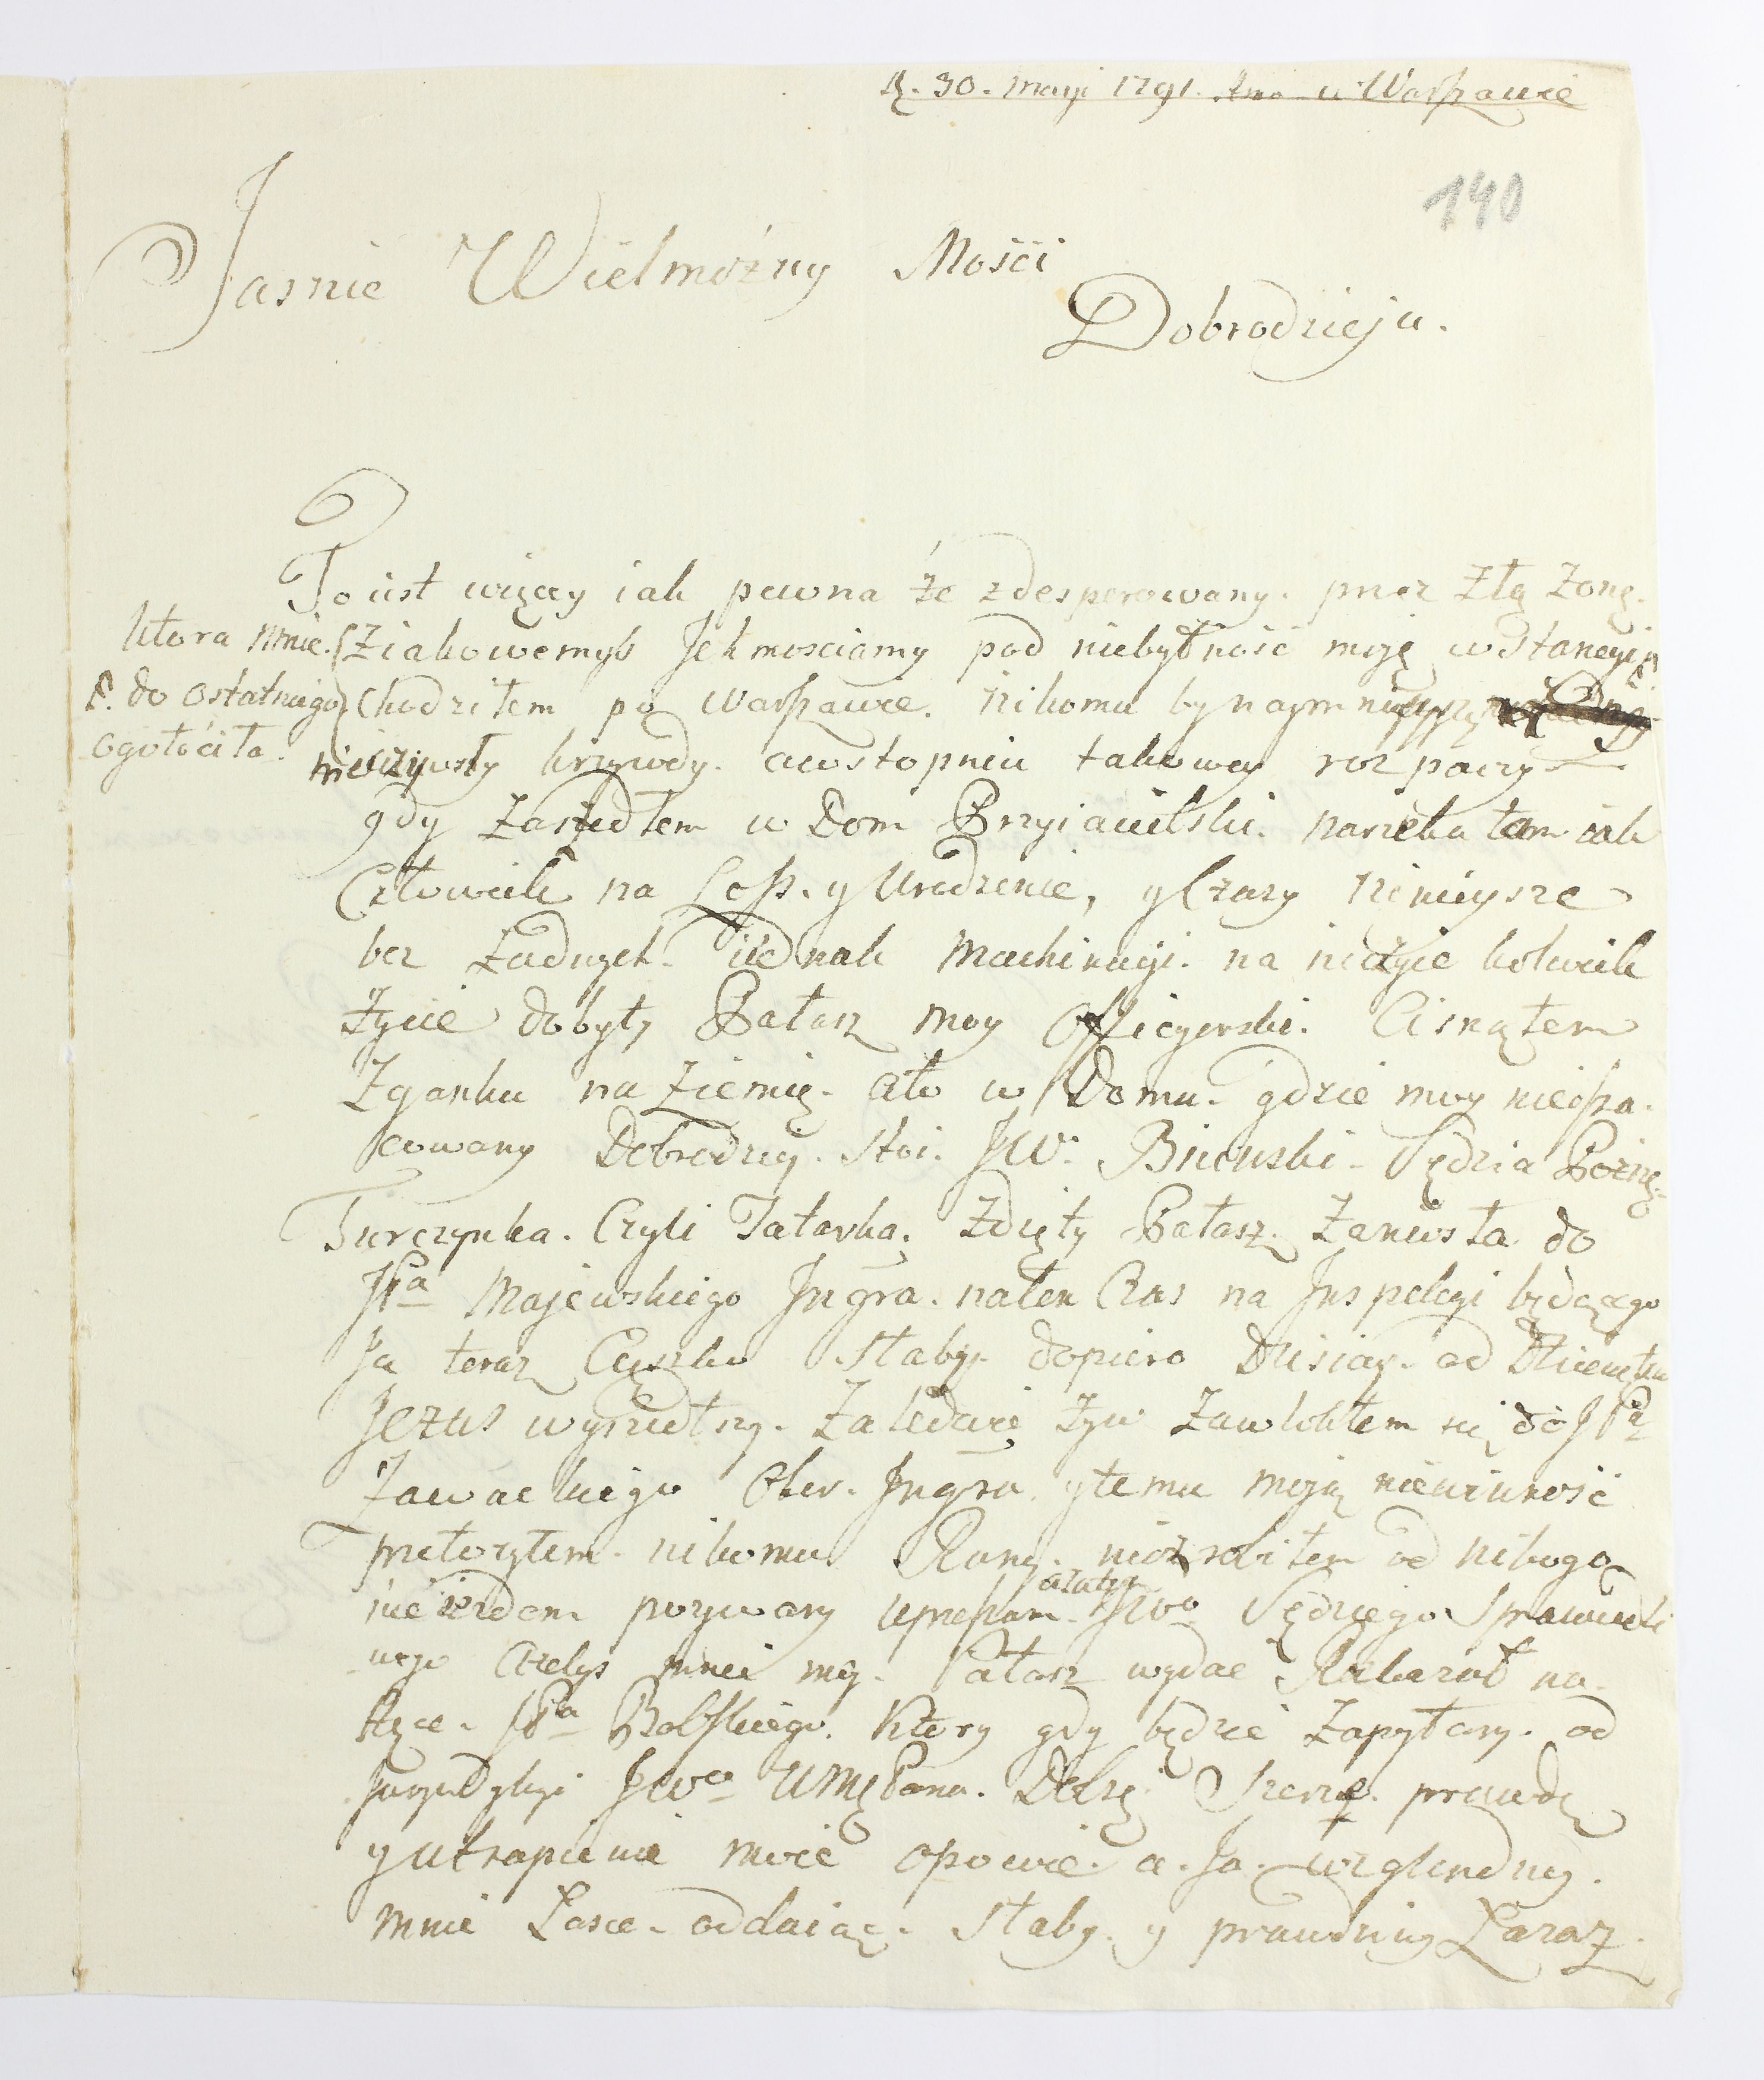 d. 30. maji 1791. Ano w Warszawie
140
Jasnie Wielmożny Mości
Dobrodzieju.
To iest więcey iak pewna że zdesperowany. przez złą żonę.
ktora mnie. z iakowemyś Jchmosciamy pod niebytność moję w Stancyi
do ostatniego
ogołociła.
Chodziłem po Warszawie. nikomu bynaymniey
nieczyniwszy krzywdy. a w stopniu takowey rozpaczy
gdy zaszedłem w Dom Przyiacielski. narzekałam iak
Człowiek na Loss. y Urodzenie, y Czasy ninieysze
bez żadnych iednak Machinacyi. na nieczyie kolwiek
życie dobyty Pałasz moy Officyerski. Cisnąłem
z ganku na ziemię. ale w Domu. gdzie moy nieosza-
cowany Dobrodziey. Stoi. JW. Sędzia
Turczynka. Czyli Tatarka. zdięty Pałasz. zaniosła do
JPa Majewskiego Jngra. naten Czas na Jnspekcyi będącego
Ja teraz Ciężko Słaby. dopiero Dzisiay. od Dzieciątka
Jezus wyszedłszy. zaledwie żyw zawlokłem się do JPa
Zawackiego Ober. Jngra y temu moją niewinność
przełożyłem. nikomu Rany. niezrobiłem od nikogo
nie iestem pozwany upraszam. JWo Sędziego Sprawiedli
wego ażebyś mnie móy. Pałasz wydać Rozkazał na.
Ręce. JPa Rolskiego. Który gdy będzie zapytany. od
Juryzdykcyi JWo Pana. Dobrę. Szczerą. prawdę
y utrapienie moie opowie. a. Ja. względney.
mnie Łasce. oddaiąc. Słaby. y prawdziwy Łazarz